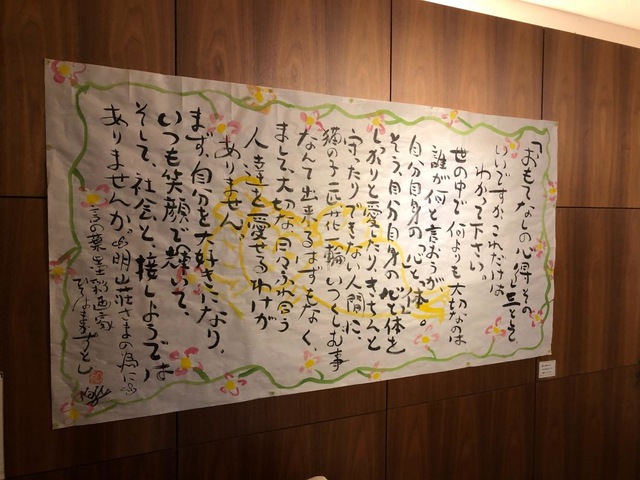 「おもてなしの心得その
いいですか、これだけは
わかって下さい。
世の中で何よりも大切なのは
誰が何と言おうが
自分自身の「心と体」。
そう、自分自身の心と体を
しっかりと愛したり、きちんと
守ったりできない人間に、
猫の子一匹、花一輪いつくしむ事
なんて出来るはずもなく、
まして、大切な日々ふれ合う
人さまを愛せるわけが
ありません。
まず、自分を大好きになり、
いつも笑顔で輝いて、
そして、社会と、接しようでは
ありませんか。
明山荘さまの為に
言の葉墨彩画家